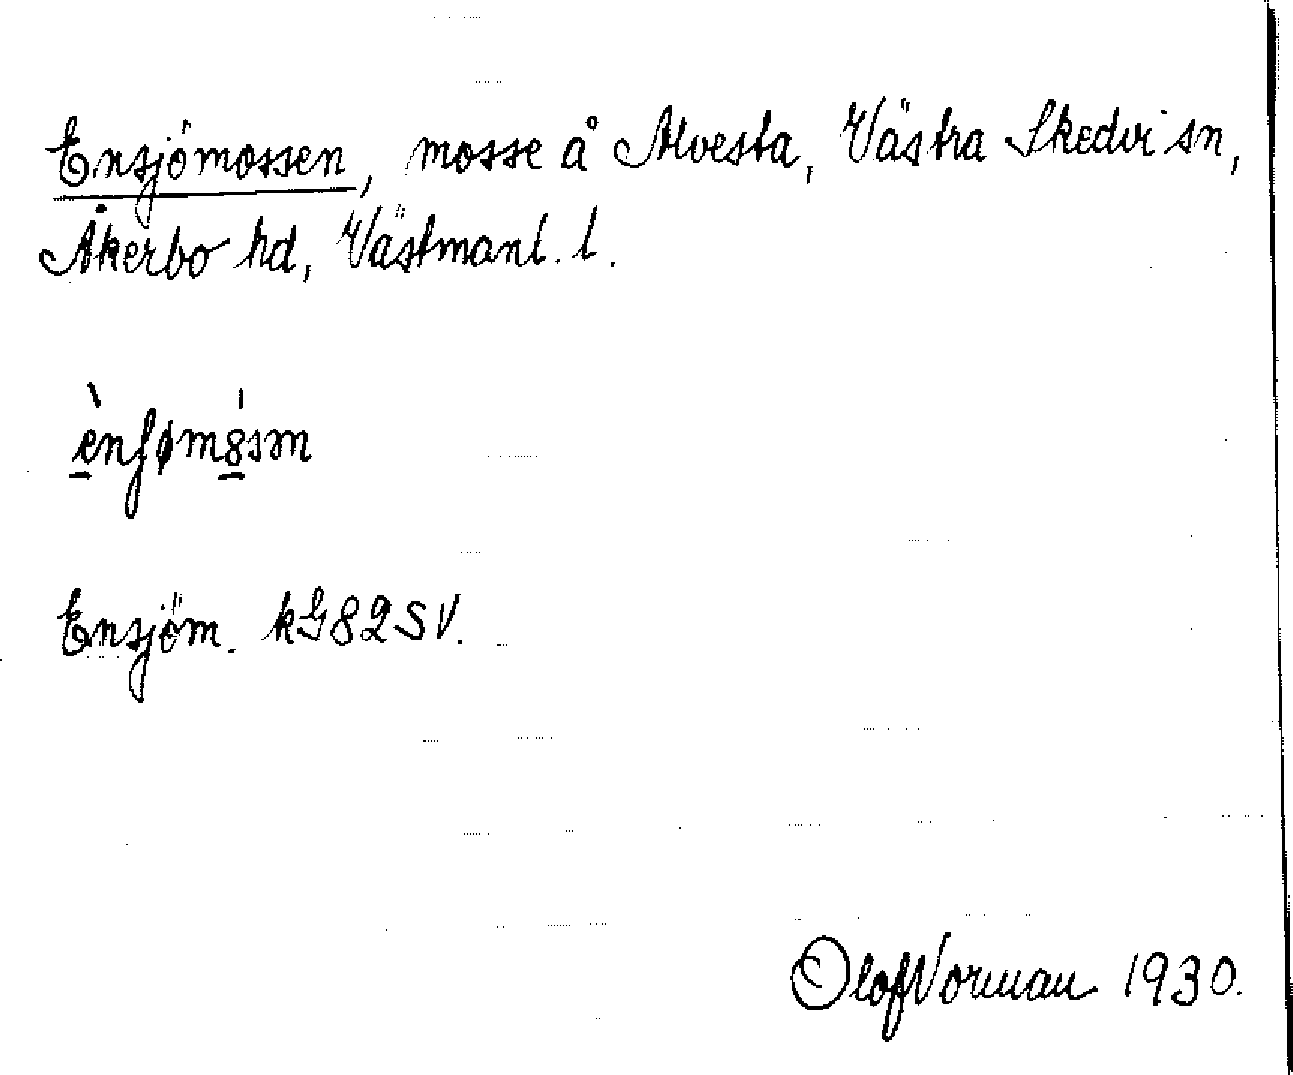 Ensjömossen, mosse å Alvesta, Västra Skedvi sn,
Åkerbo hd, Västmanl. l.
Ensjöm. kG82SV.
Olof Norman 1930.